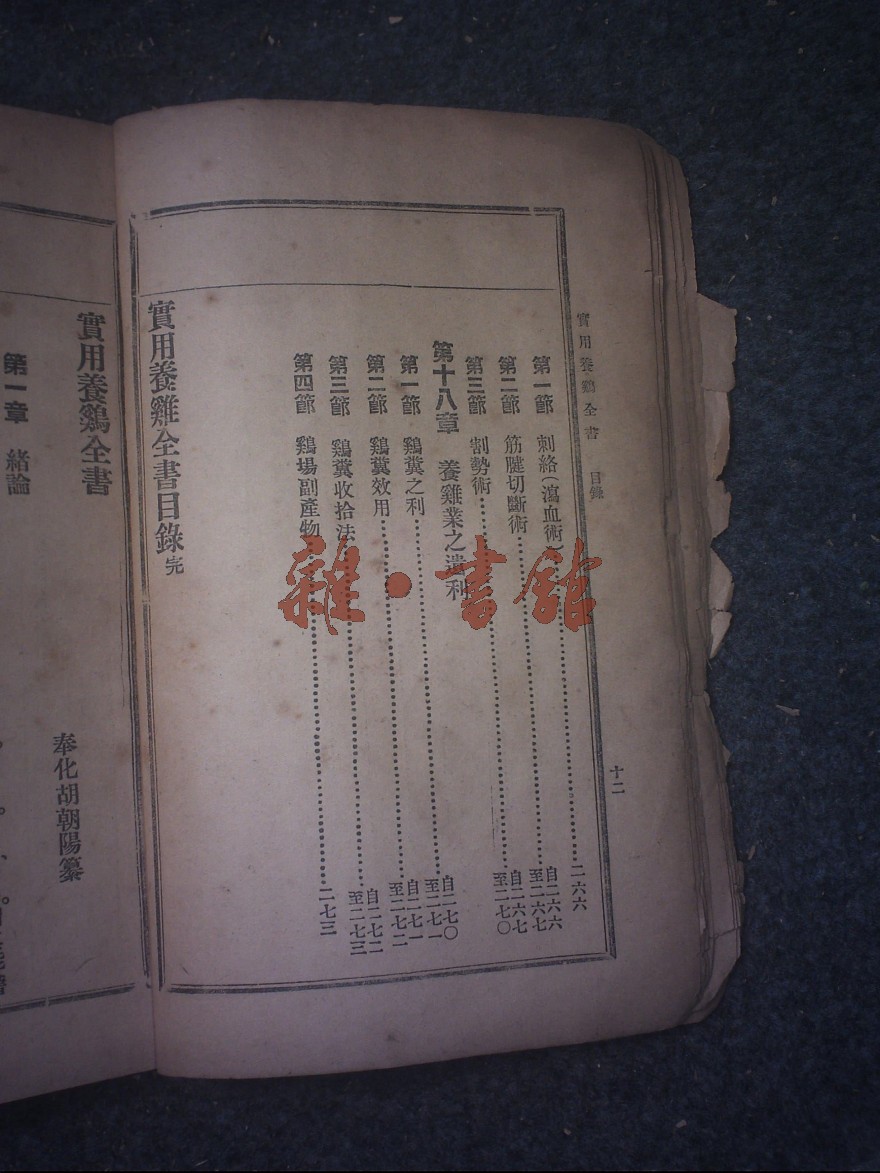 實用養鷄全書　目錄
十二
第一節　刺絡(瀉血術)……二六六
第二節　筋腱切斷術……自二六六至二六七
第三節　割勢術……自二六七至二七〇
第十八章　養雞業之遺利
第一節　鷄糞之利……自二七〇至二七一
第二節　鷄糞效用……自二七一至二七二
第三節　鷄糞收拾法……自二七二至二七三
第四節　鷄場副產物……二七三
實用養雞全書目錄完
實用養鷄全書
奉化胡朝陽纂
第一章　緒論
雜·書館